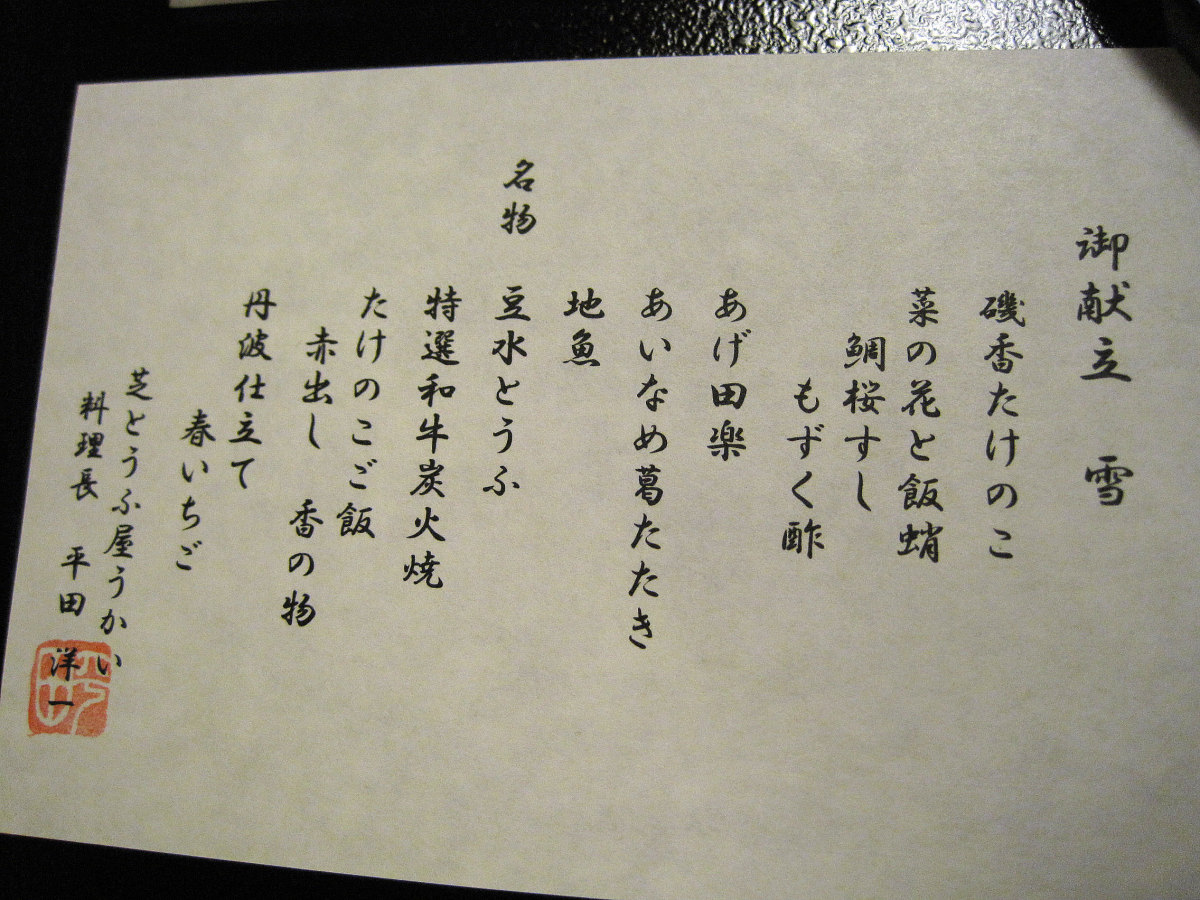 御献立　雪
磯香たけのこ
菜の花と飯蛸
鯛桜すし
もずく酢
あげ田楽
あいなめ葛たたき
地魚
名物　豆水とうふ
特選和牛炭火焼
たけのこご飯
赤出し　香の物
丹波仕立て
春いちご
芝とうふ屋うかい
料理長　平田　洋一